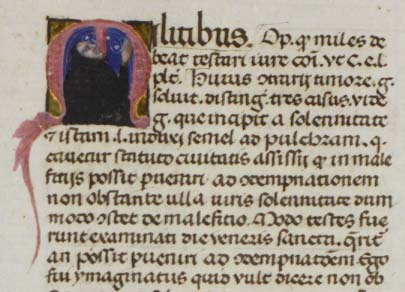 Militibus. Op. q miles de
beat testari iure coi. ut C. e. l.
plt. Huius otrarij timore. g.
soluit. distingt. tres casus. vide
g. que incipit a solennitate
⁊ istam. l. induxi semel ad pulchram. q.
cauetur statuto ciuitatis assisij q in male
fitijs possit pueniri ad otempnationem
non obstante ulla iuris solennitate dum
modo ostet de maleficio. Modo testes fue
runt examinati die ueneris sancti. qrit
an possit pueniri ad otempnatoem. Ego
fui ymaginatus quid uult dicere non ob